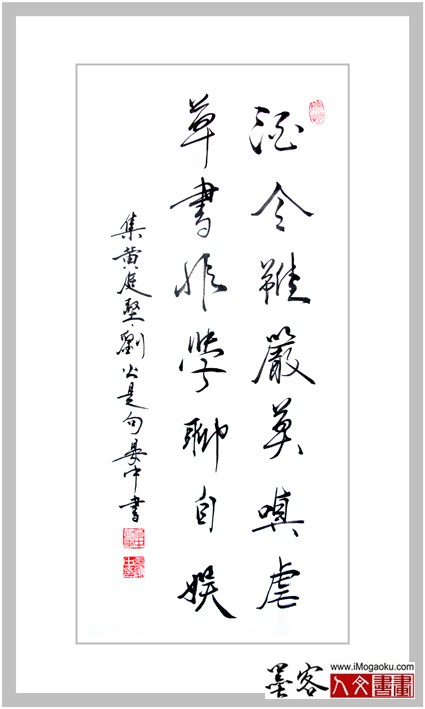 酒令雖嚴莫嗔虐
草書非學聊自娛
集黄庭堅劉公是句晏中書
墨客
www.iMogaoku.com
人文書畫